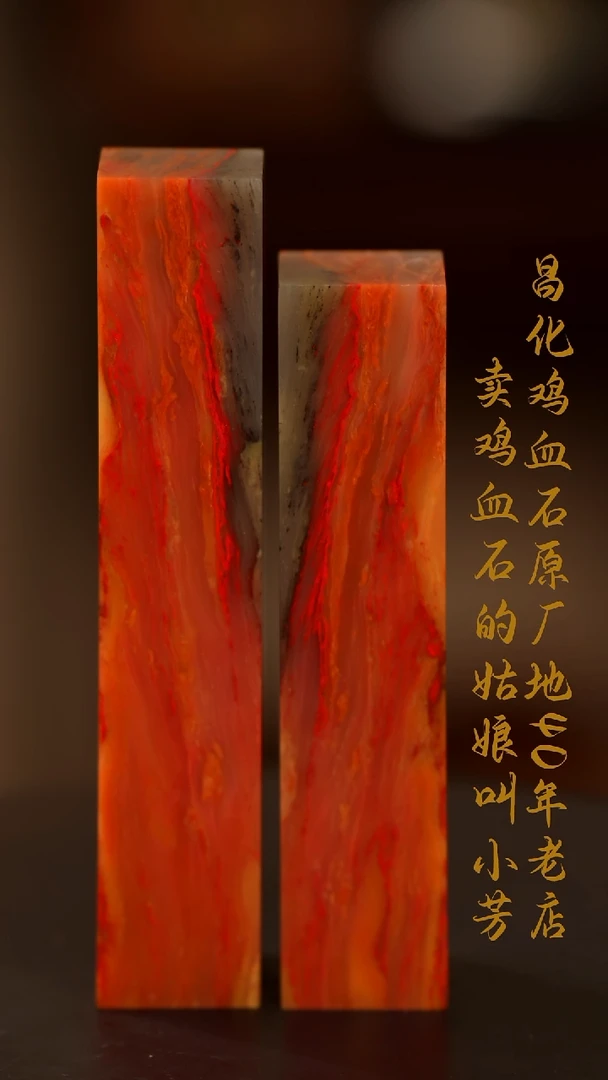 昌化鸡血石原厂地30年老店
卖鸡血石的姑娘叫小芳